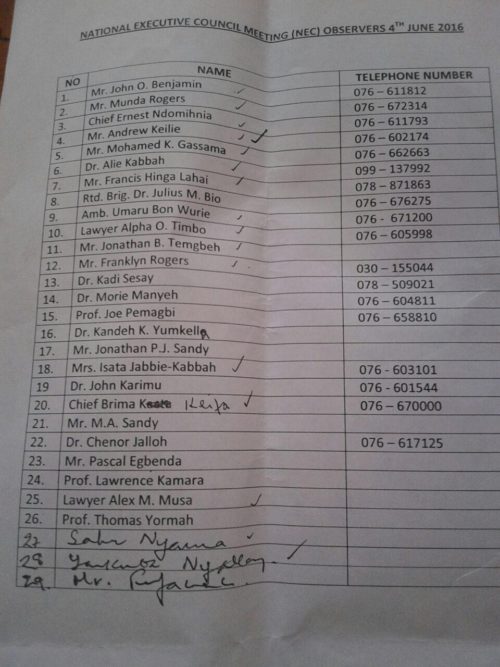 NATIONAL EXECUTIVE COUNCIL MEETING (NEC) OBSERVERS 4TH JUNE 2016
NO NAME TELEPHONE NUMBER
1. Mr. John O. Benjamin 076 – 611812
2. Mr. Munda Rogers 076 – 672314
3. Chief Ernest Ndomihnia 076 – 611793
4. Mr. Andrew Keilie 076 – 602174
5. Mr. Mohamed K. Gassama 076 – 662663
6. Dr. Alie Kabbah 099 – 137992
7. Mr. Francis Hinga Lahai 078 – 871863
8. Rtd. Brig. Dr. Julius M. Bio 076 – 676275
9. Amb. Umaru Bon Wurie 076 - 671200
10. Lawyer Alpha O. Timbo 076 – 605998
11. Mr. Jonathan B. Temgbeh
12. Mr. Franklyn Rogers 030 – 155044
13. Dr. Kadi Sesay 078 – 509021
14. Dr. Morie Manyeh 076 – 604811
15. Prof. Joe Pemagbi 076 – 658810
16. Dr. Kandeh K. Yumkella
17. Mr. Jonathan P.J. Sandy
18. Mrs. Isata Jabbie-Kabbah 076 - 603101
19 Dr. John Karimu 076 - 601544
20. Chief Brima Keifa 076 – 670000
21. Mr. M.A. Sandy
22. Dr. Chenor Jalloh 076 – 617125
23. Mr. Pascal Egbenda
24. Prof. Lawrence Kamara
25. Lawyer Alex M. Musa
26. Prof. Thomas Yormah
27 Sahr Nyama
28
29. Mr.